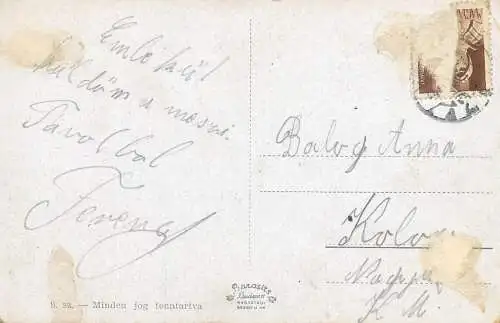 Emlékül
küldöm a messzi
Távolból
Ferenc
Balog Anna
Kolon
K M.
B. 92. — Minden jog fenntartva
Barasits
Budapest